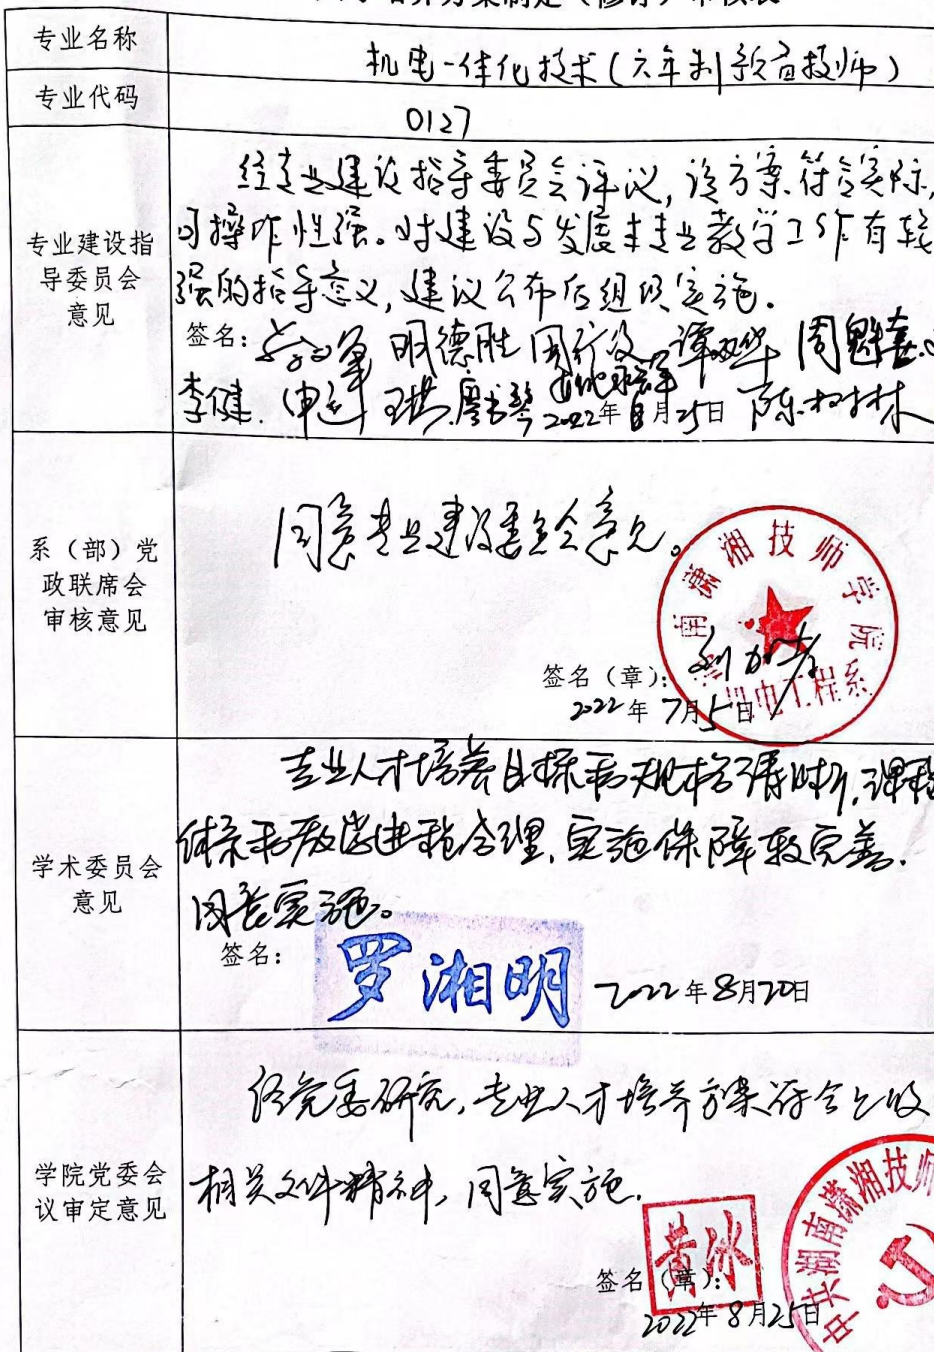 专业名称
机电一体化技术(六年制预备技师)
专业代码
0127
专业建设指
导委员会
意见
经专业建设指导委员会评议,该方案符合实际,
可操作性强。对建设与发展本专业教学工作有较
强的指导意义,建议公布后组织实施。
签名: 明德胜
李健
2022年 月25日
系(部)党
政联席会
审核意见
同意专业建设委员会意见。
湖南潇湘技师学院
机电工程系
签名(章):
2022年7月5日
学术委员会
意见
专业人才培养目标和规格清晰,课程
体系和教学进程合理,实施保障较完善,
同意实施。
签名:
罗湘明
2022年8月20日
学院党委会
议审定意见
经党委研究,专业人才培养方案符合上级
相关文件精神,同意实施。
黄冰
签名(章):
2022年8月25日
中共湖南潇湘技师